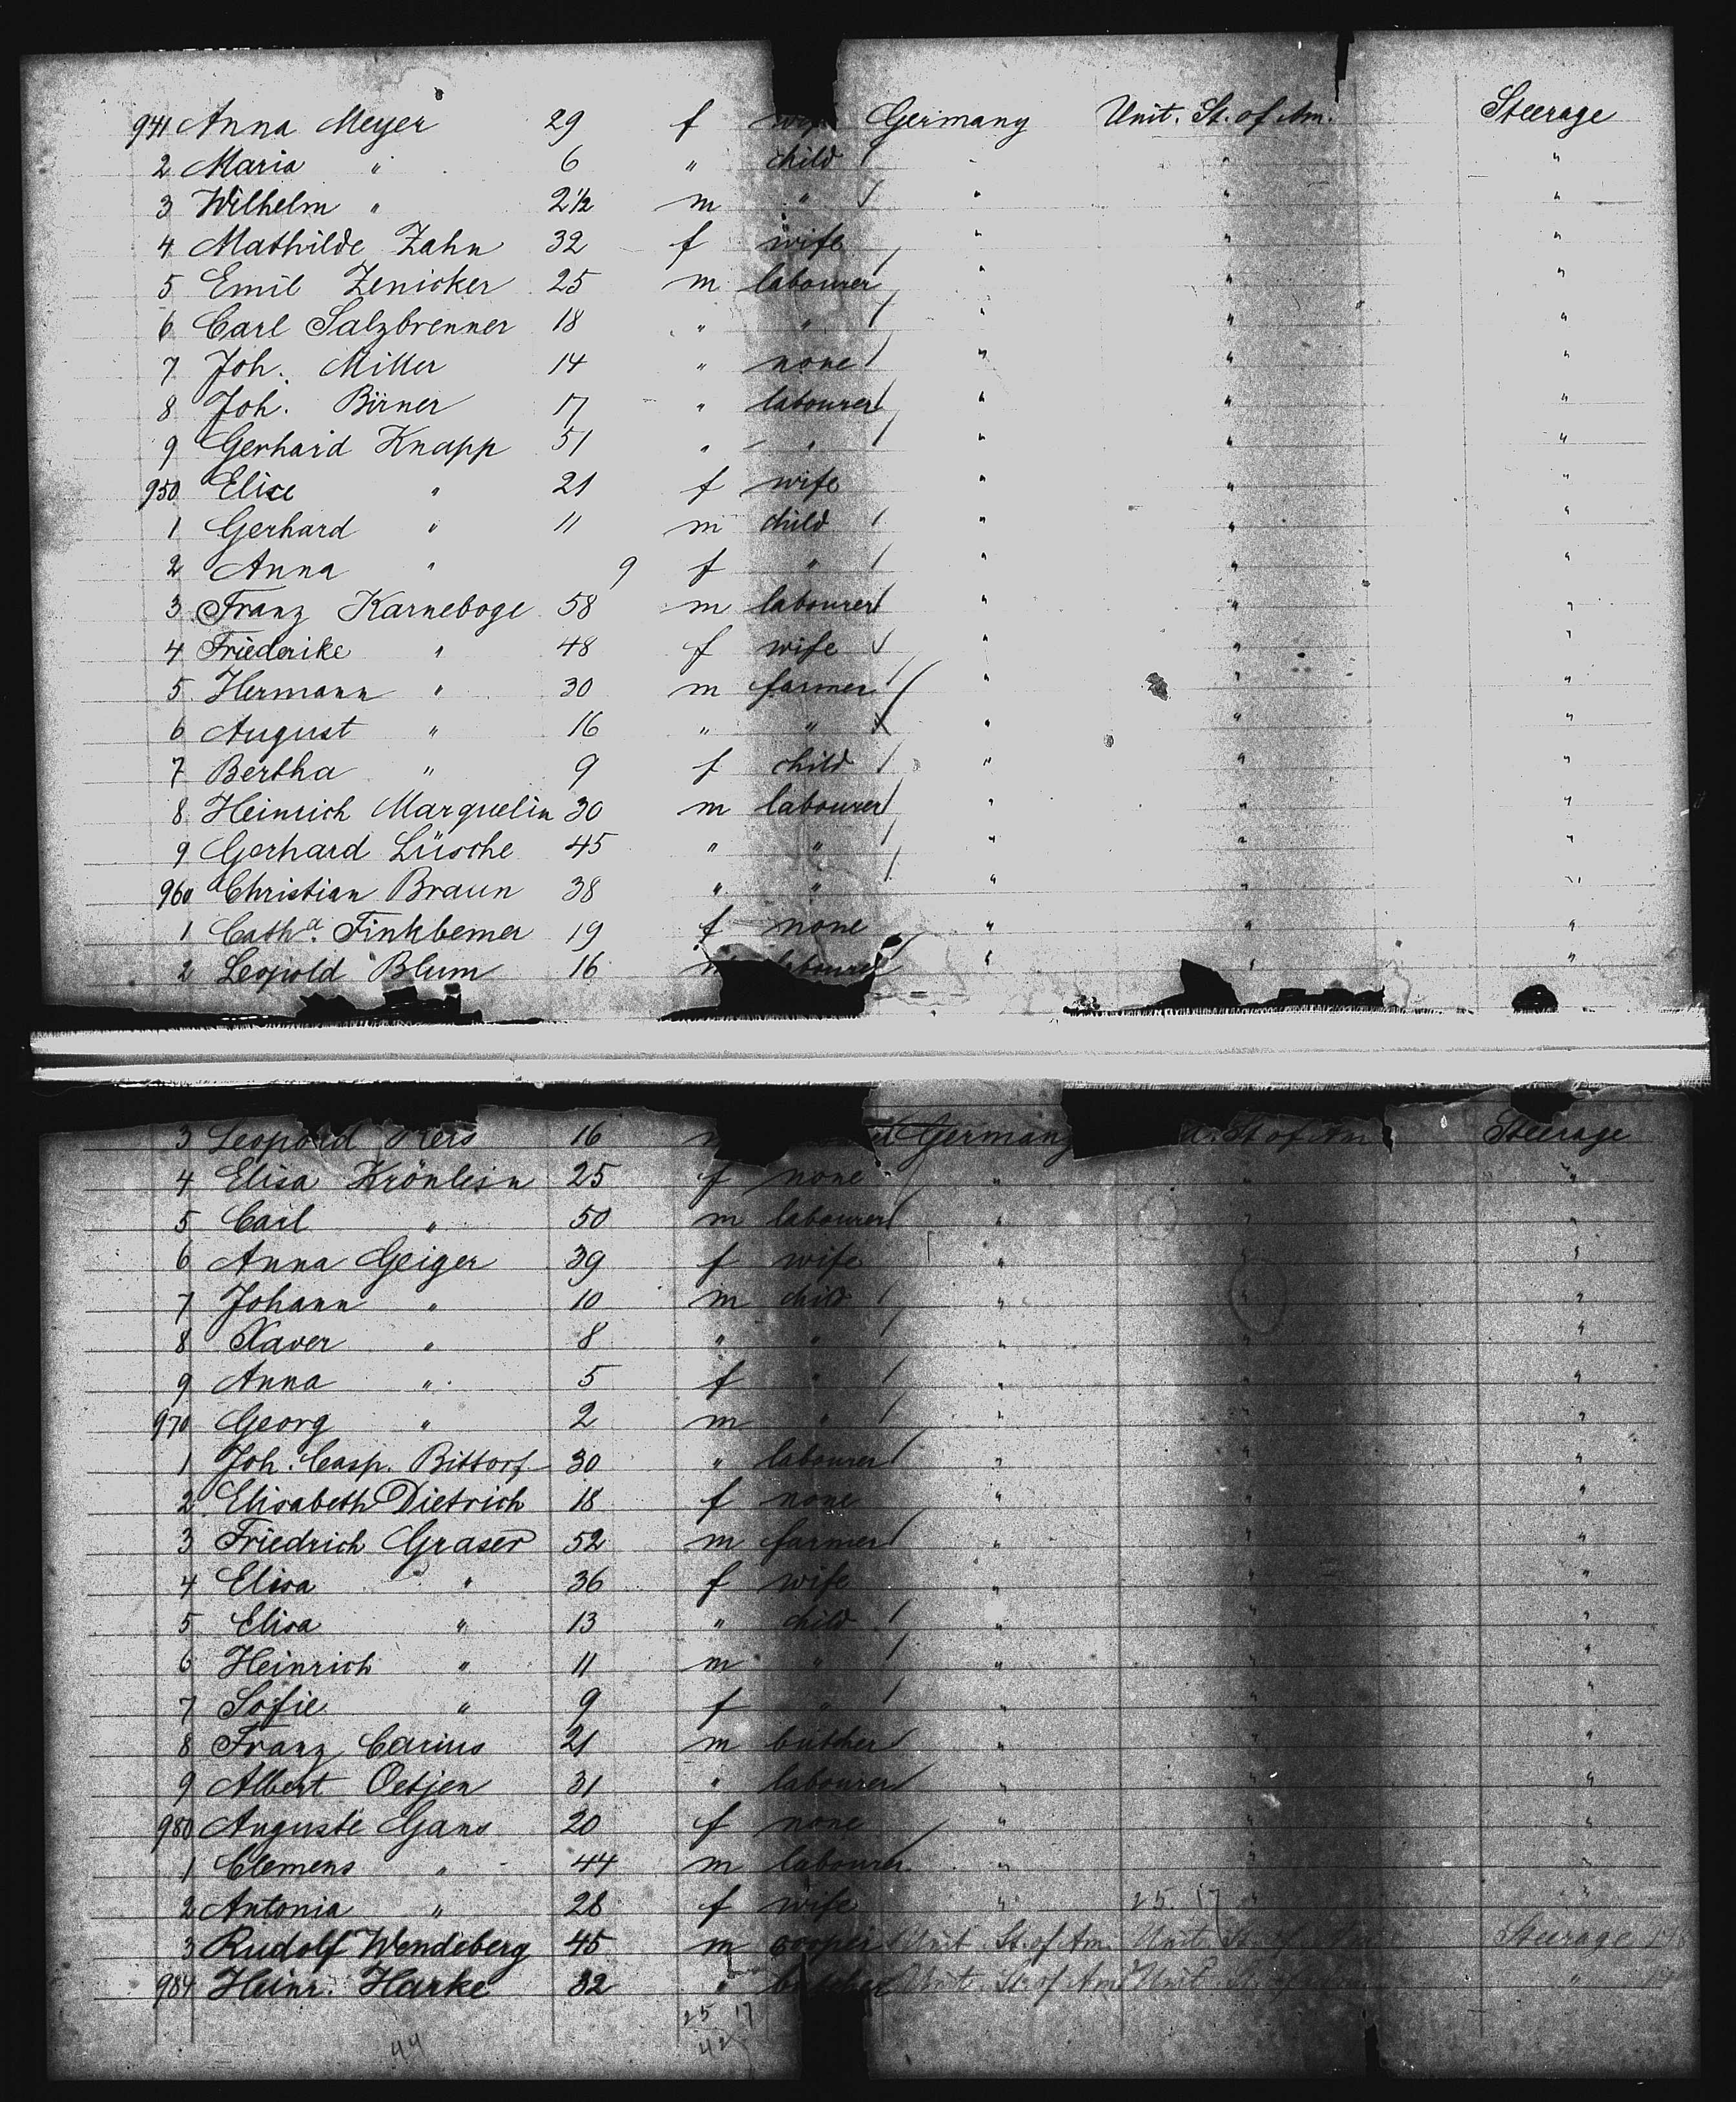 941 Anna Meyer 29 f wife Germany Unit. St. of Am. Steerage
2 Maria " 6 " child " " "
3 Wilhelm " 2½ m " " " "
4 Mathilde Zahn 32 f wife " " "
5 Emil Zenicker 25 m labourer " " "
6 Carl Salzbrenner 18 " " " " "
7 Joh. Miller 14 " none " " "
8 Joh. Birner 17 " labourer " " "
9 Gerhard Knapp 51 " " " " "
950 Elise " 21 f wife " " "
1 Gerhard " 11 m child " " "
2 Anna " 9 f " " " "
3 Franz Karneboge 58 m labourer " " "
4 Friederike " 48 f wife " " "
5 Hermann " 30 m farmer " " "
6 August " 16 " " " " "
7 Bertha " 9 f child " " "
8 Heinrich Marquelin 30 m labourer " " "
9 Gerhard Lüsche 45 " " " " "
960 Christian Braun 38 " " " " "
1 Cath.a Finkbemer 19 f none " " "
2 Leopold Blum 16 m labourer " " "
3 Leopold 16 Germany St of Am Steerage
4 Elisa Krönlein 25 f none " " "
5 Carl " 50 m labourer " " "
6 Anna Geiger 39 f wife " " "
7 Johann " 10 m child " " "
8 Xaver " 8 " " " " "
9 Anna " 5 f " " " "
970 Georg " 2 m " " " "
1 Joh. Casp. Bittorf 30 " labourer " " "
2 Elisabeth Dietrich 18 f none " " "
3 Friedrich Graser 52 m farmer " " "
4 Elisa " 36 f wife " " "
5 Elisa " 13 " child " " "
6 Heinrich " 11 m " " " "
7 Sofie " 9 f " " " "
8 Franz Carius 21 m butcher " " "
9 Albert Oetjen 31 " labourer " " "
980 Auguste Gans 20 f none " " "
1 Clemens " 44 m labourer " " "
2 Antonia " 28 f wife " 25. 17 " "
3 Rudolf Wendeberg 45 m cooper Unit. St. of Am. Unit. St. of Am. Steerage
984 Heinr. Harke 32 " butcher Unit. St. of Am. Unit. St. of Am. "
25 17
44 42